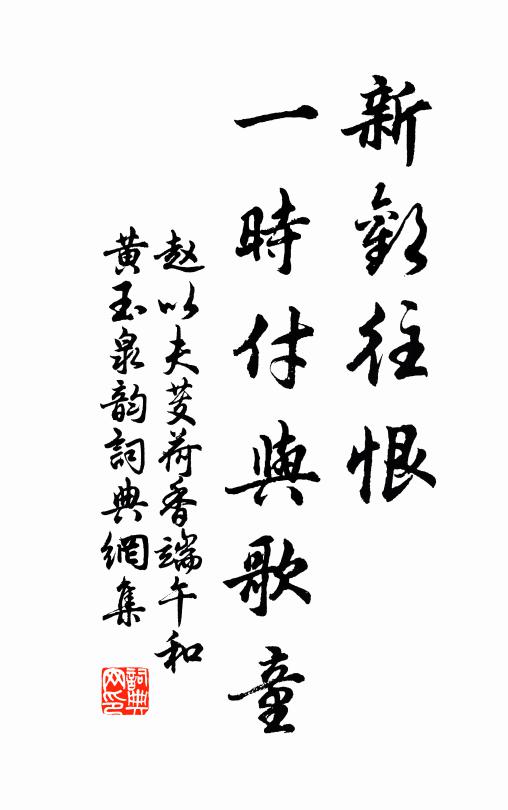 新歡往恨
一時付與歌童
赵以夫芰荷香端午和
黄玉泉韵詞典網集
詞典網印